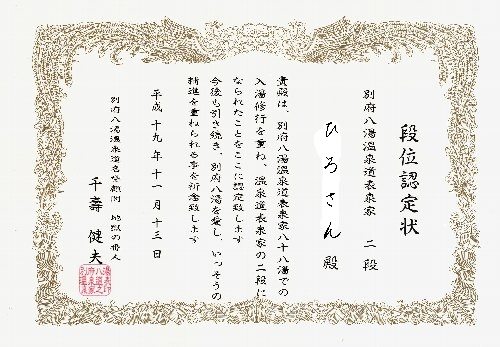 段位認定状
別府八湯温泉道表泉家　二段
ひろさん殿
貴殿は、別府八湯温泉道表泉家八十八湯での
入湯修行を重ね、温泉道表泉家の二段に
なられたことをここに認定致します
今後も引き続き、別府八湯を愛し、いっそうの
精進を重ねられる事を祈念致します
平成十九年十一月十三日
別府八湯温泉道名誉顧問　地獄の番人
千壽　健夫